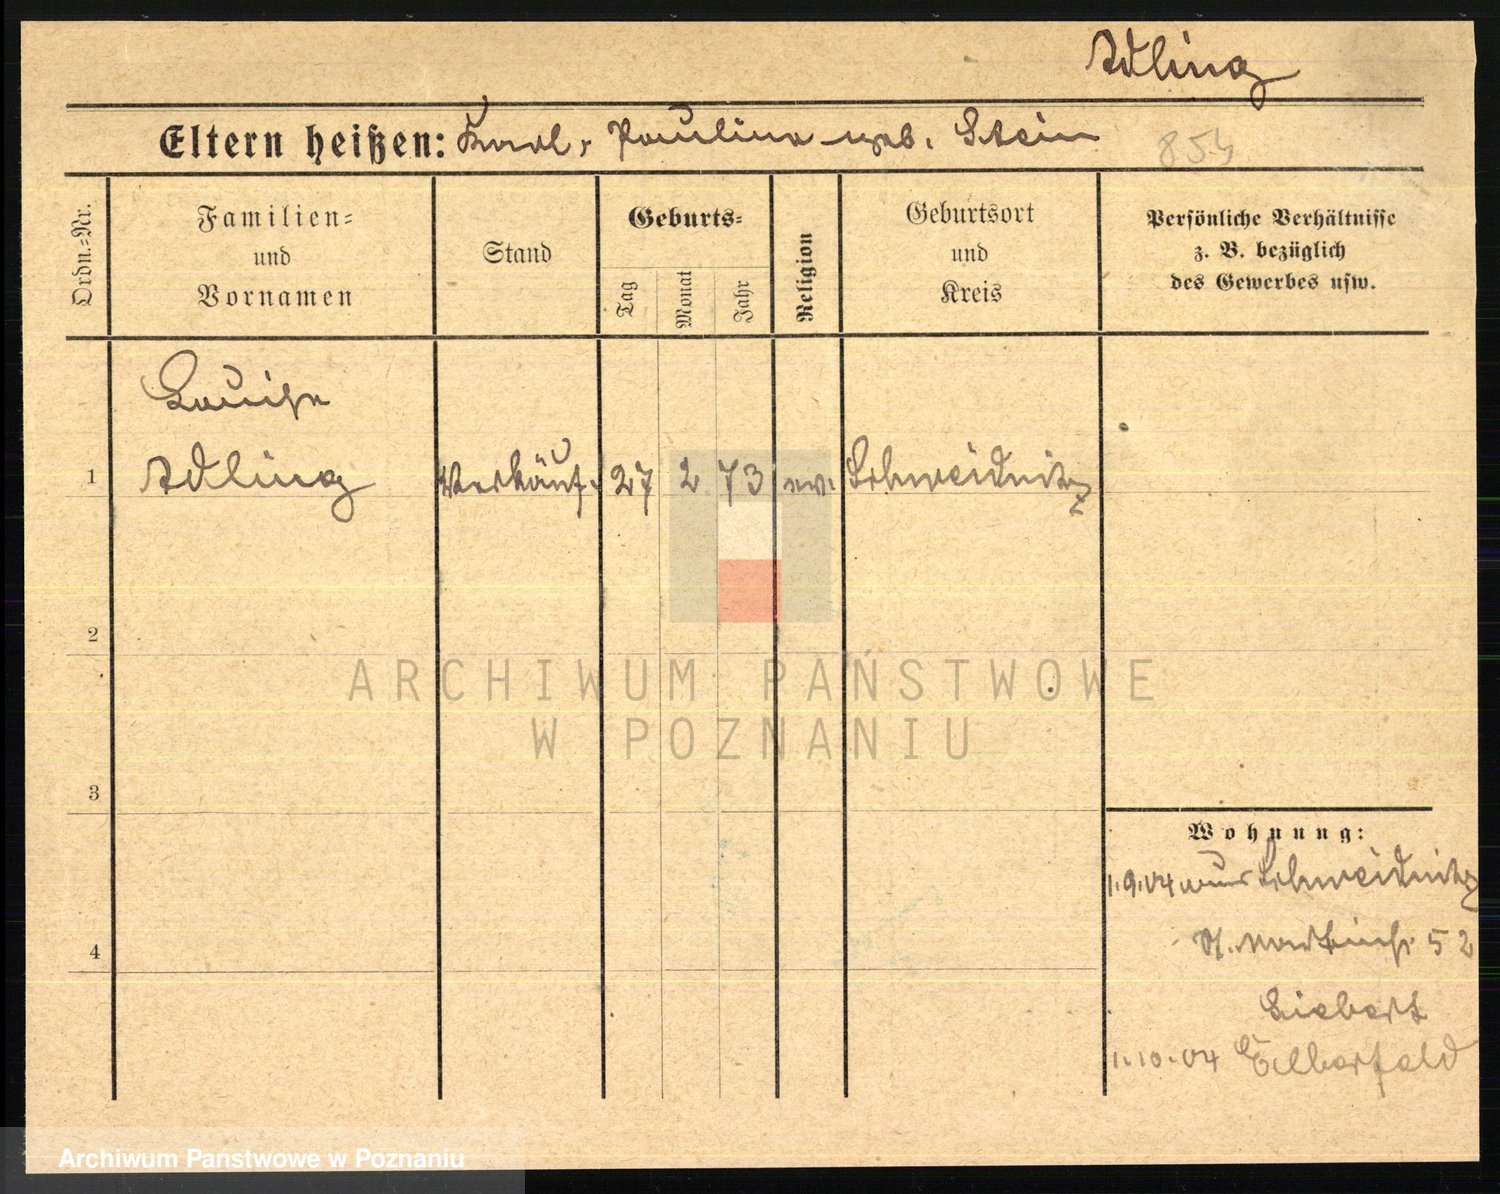 Adling
Eltern heißen: Karl, Paulina geb. Stein
854
Ordn.-Nr.
Familien-
und
Vornamen
Stand
Geburts-
Tag
Monat
Jahr
Religion
Geburtsort
und
Kreis
Persönliche Verhältnisse
z. B. bezüglich
des Gewerbes usw.
Louise
1 Adling Verkäuf. 27 2 73 ev. Schweidnitz
2
ARCHIWUM PAŃSTWOWE
W POZNANIU
3
Wohnung:
1.9.04 von Schweidnitz
St. Martinstr. 52
4
Siebert
1.10.04 Elberfeld
Archiwum Państwowe w Poznaniu